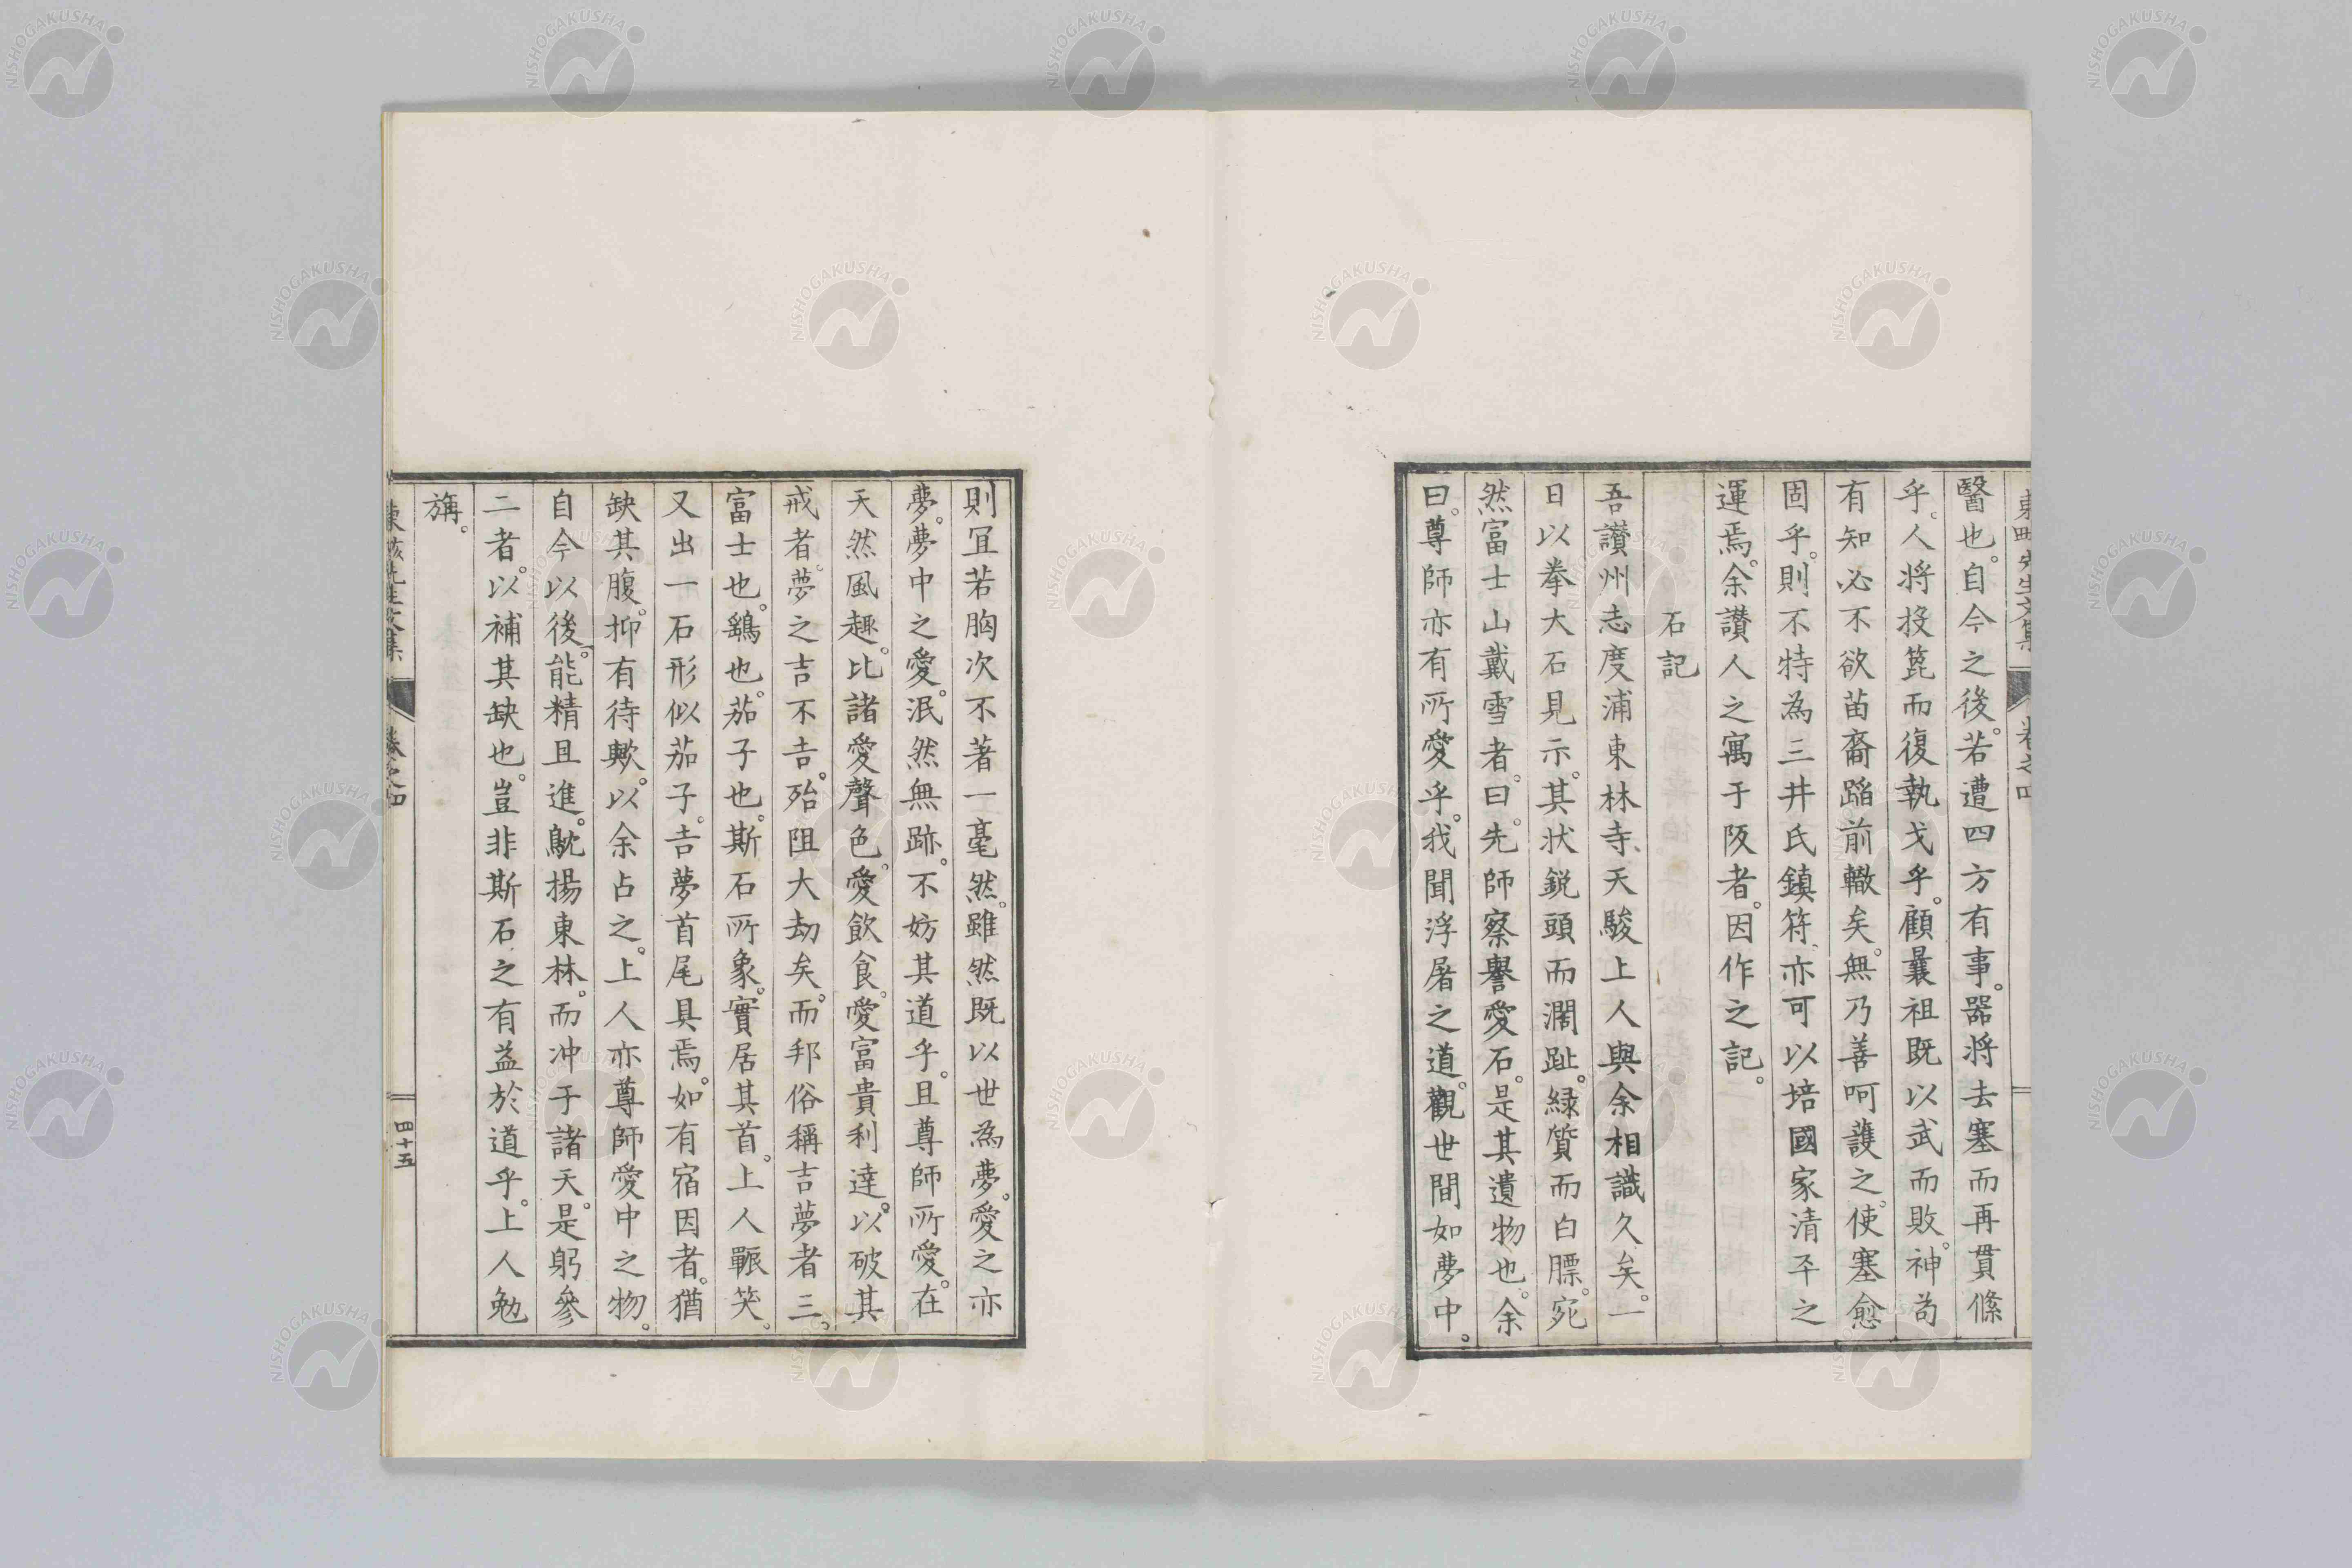 醫也。自今之後。若遭四方有事。器將去塞而再貫絛
乎。人將投箆而復執戈乎。顧曩祖既以武而敗。神苟
有知必不欲苗裔蹈前轍矣。無乃善呵護之。使塞愈
固乎。則不特為三井氏鎮符、亦可以培國家清平之
運焉。余讃人之寓于阪者。因作之記。
石記
吾讃州志度浦東林寺、天駿上人與余相識久矣。一
日以拳大石見示。其状鋭頭而濶趾。緑質而白膘。宛
然富士山戴雪者。曰。先師察譽愛石。是其遺物也。余
曰。尊師亦有所愛乎。我聞浮屠之道。觀世間如夢中。
則冝若胸次不著一毫然。雖然既以世為夢。愛之亦
夢。夢中之愛。泯然無跡。不妨其道乎。且尊師所愛。在
天然風趣。比諸愛聲色。愛飲食。愛富貴利達。以破其
戒者。夢之吉不吉。殆阻大劫矣。而邦俗稱吉夢者三。
富士也。鷂也。茄子也。斯石所象。實居其首。上人囅笑。
又出一石形似茄子。吉夢首尾具焉。如有宿因者。猶
缺其腹。抑有待歟。以余占之。上人亦尊師愛中之物。
自今以後。能精且進。鷙揚東林。而冲于諸天。是躬參
二者。以補其缺也。豈非斯石之有益於道乎。上人勉
旃。
東畡先生文集
卷之四
四十五